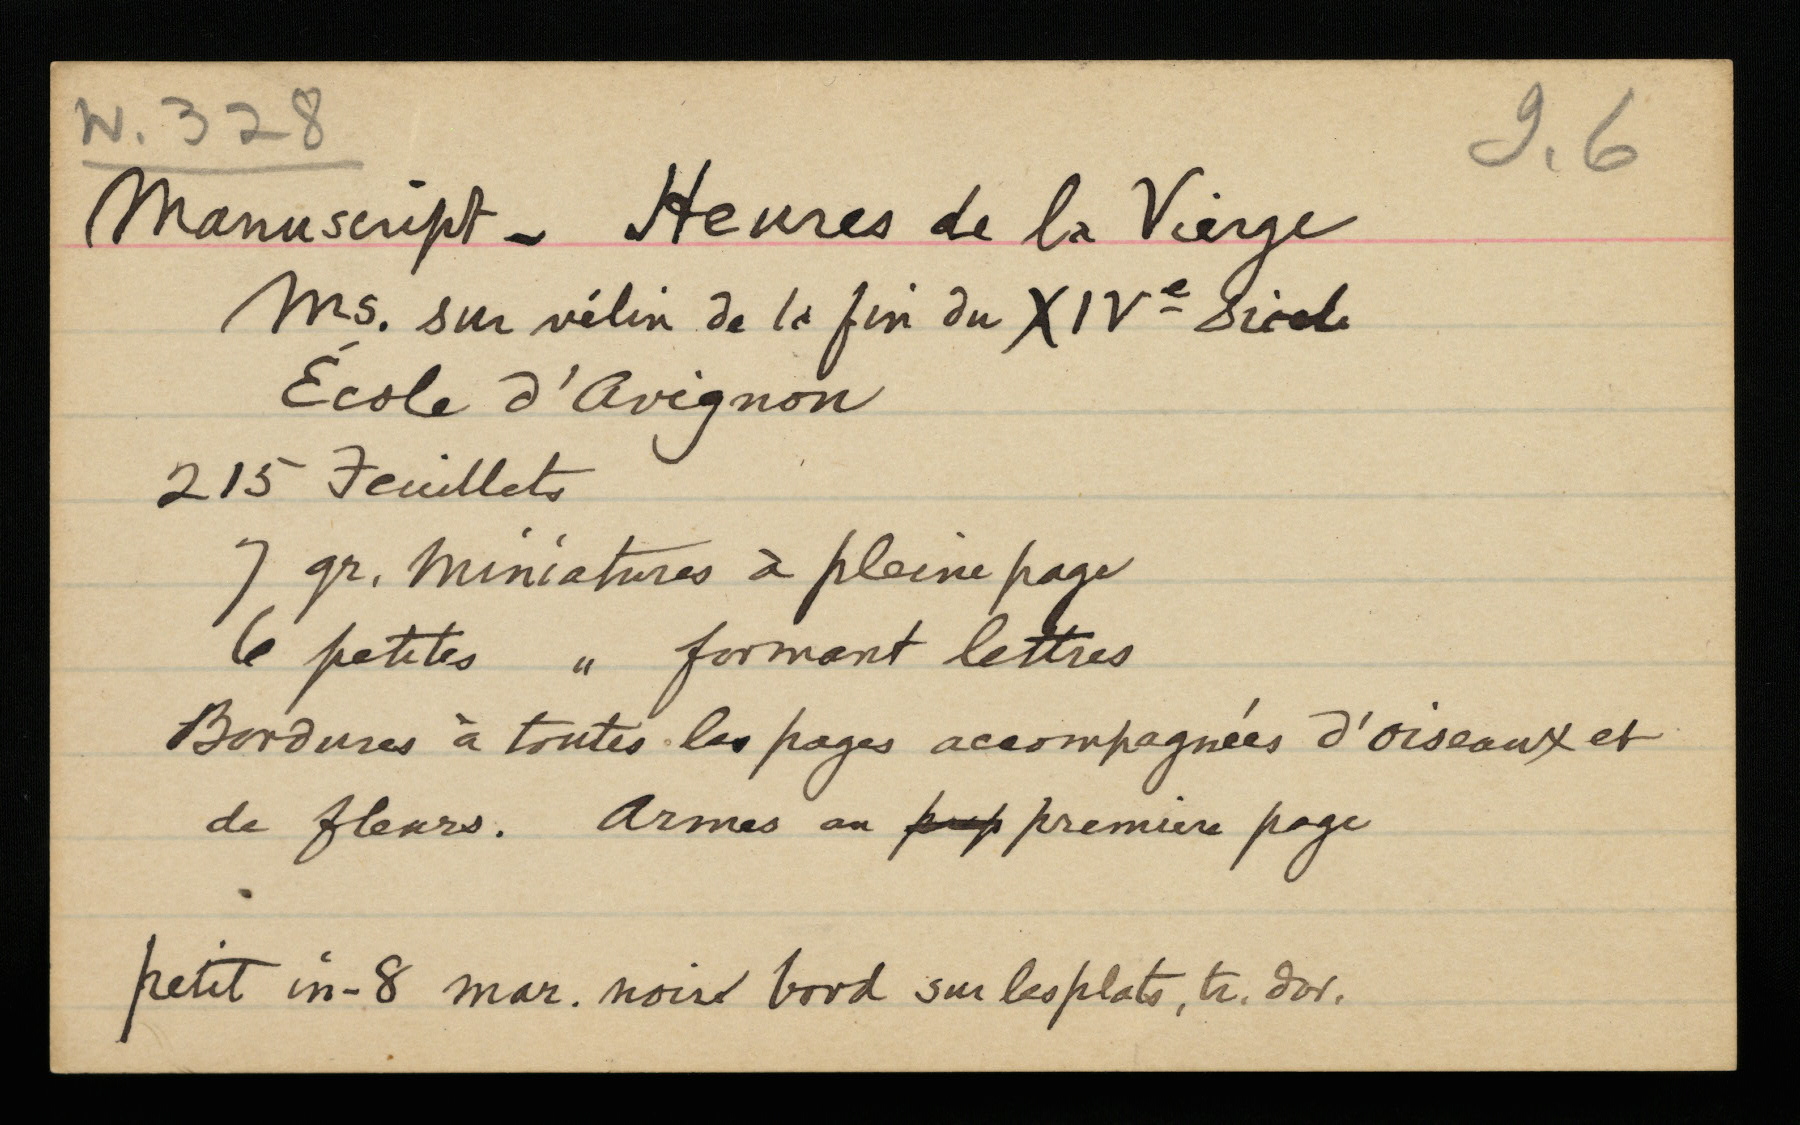 W. 328
9.6
Manuscript - Heures de la Vierge
Ms. sur vélin de la fin du XIVe Siècle
École d'Avignon
215 Feuillets
7 gr. miniatures à pleine page
6 petites " formant lettres
Bordures à toutes les pages accompagnées d'oiseaux et
de fleurs. Armes au premiere page
petit in-8 mar. noir bord sur les plats, tr. dor.